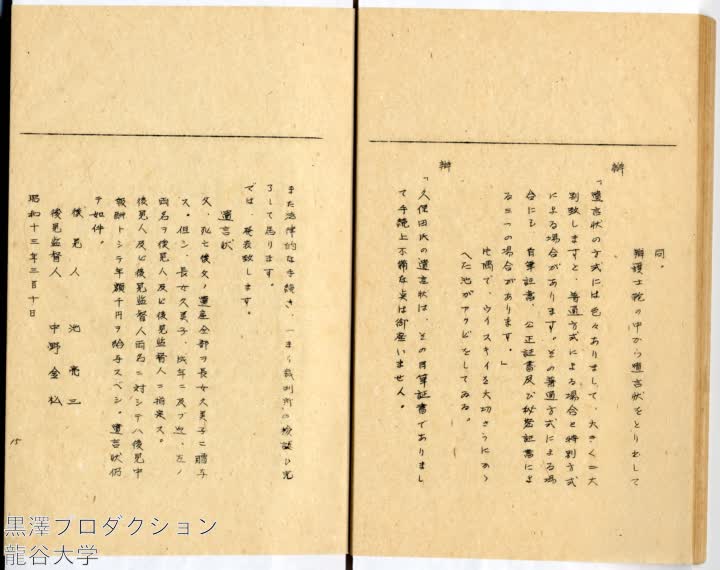 同。
辯護士鞄の中から遺言状をとり出して
辯
「遺言状の方式には色々ありまして、大きく二大
別致しますと、普通方式による場合と特別方式
による場合があります。その普通方式による場
合にも、自筆証書、公正証書及び秘密証書によ
る三つの場合があります。」
片隅で、ウイスキイを大切さうにかゝ
へた池がアクビをしてゐる。
辯
「久保田氏の遺言状は、その自筆証書でありまし
て手続上不備な点は御座いません。
また法律的な手続き、つまり裁判所の検認も完
了して居ります。
では、発表致します。
遺言状
父、死亡後父ノ遺産全部ヲ長女久美子ニ贈与
ス。但シ、長女久美子、成年ニ及ブ迄、左ノ
両名ヲ後見人及ビ後見監督人ニ指定ス。
後見人及ビ後見監督人両名ニ対シテハ後見中
報酬トシテ年額千円ヲ給与スベシ。遺言状仍
テ如件。
昭和十三年三月十日
後見人 池亮三
後見監督人 中野金松
15
黒澤プロダクション
龍谷大学